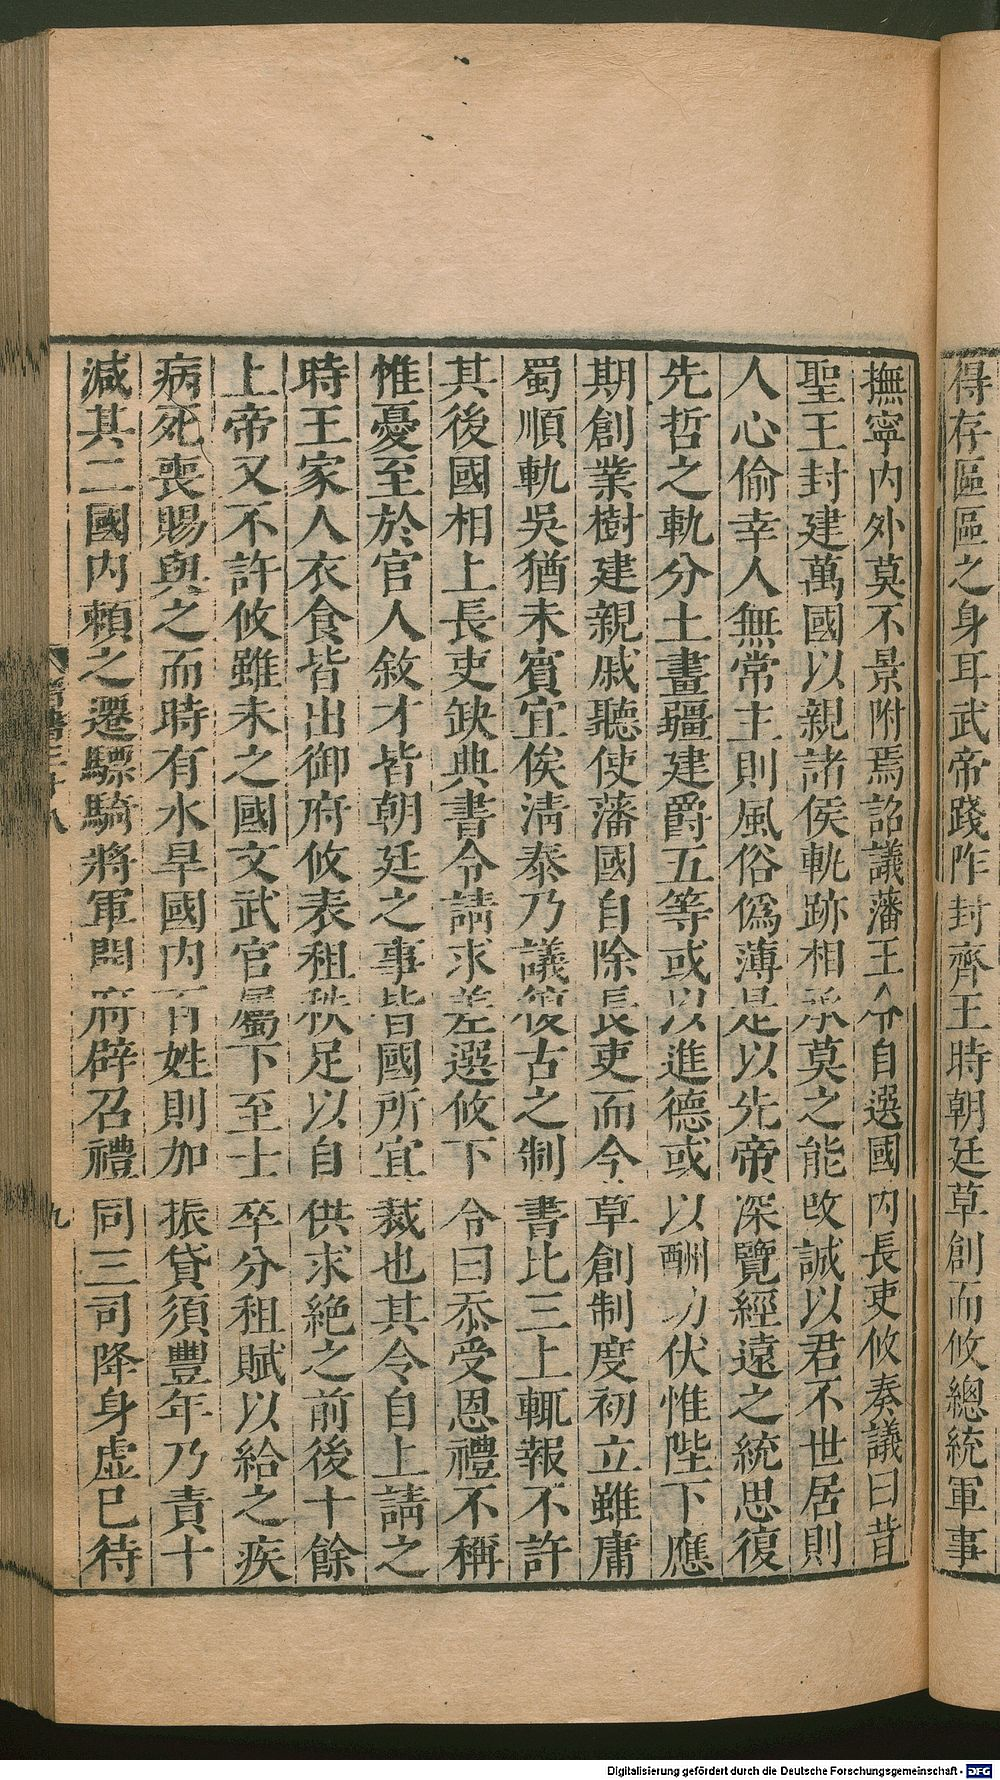 得存區區之身耳武帝踐阼封齊王時朝廷草創而攸總統軍事
撫寧內外莫不景附焉詔議藩王令自選國內長吏攸奏議曰昔
聖王封建萬國以親諸侯軌跡相承莫之能改誠以君不世居則
人心偷幸人無常主則風俗僞薄是以先帝深覽經遠之統思復
先哲之軌分土畫疆建爵五等或以進德或以酬功伏惟陛下應
期創業樹建親戚聽使藩國自除長吏而今草創制度初立雖庸
蜀順軌吳猶未賓宜俟淸泰乃議復古之制書比三上輒報不許
其後國相上長吏缺典書令請求差選攸下令曰忝受恩禮不稱
惟憂至於官人敘才皆朝廷之事皆國所宜裁也其令自上請之
時王家人衣食皆出御府攸表租秩足以自供求絶之前後十餘
上帝又不許攸雖未之國文武官屬下至士卒分租賦以給之疾
病死喪賜與之而時有水旱國內百姓則加振貸須豐年乃責十
減其二國內賴之遷驃騎將軍開府辟召禮同三司降身虛已待
九
Digitalisierung gefördert durch die Deutsche Forschungsgemeinschaft - DFG